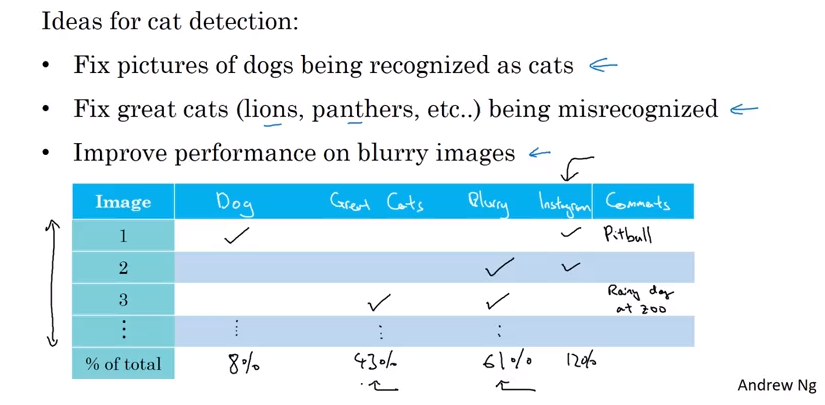 Ideas for cat detection:
• Fix pictures of dogs being recognized as cats
• Fix great cats (lions, panthers, etc..) being misrecognized
• Improve performance on blurry images
Image Dog Great Cats Blurry Instagram Comments
1 ✓ ✓ Pitbull
2 ✓ ✓
3 ✓ ✓ Rainy day at zoo
⋮ ⋮ ⋮ ⋮
% of total 8% 43% 61% 12%
Andrew Ng